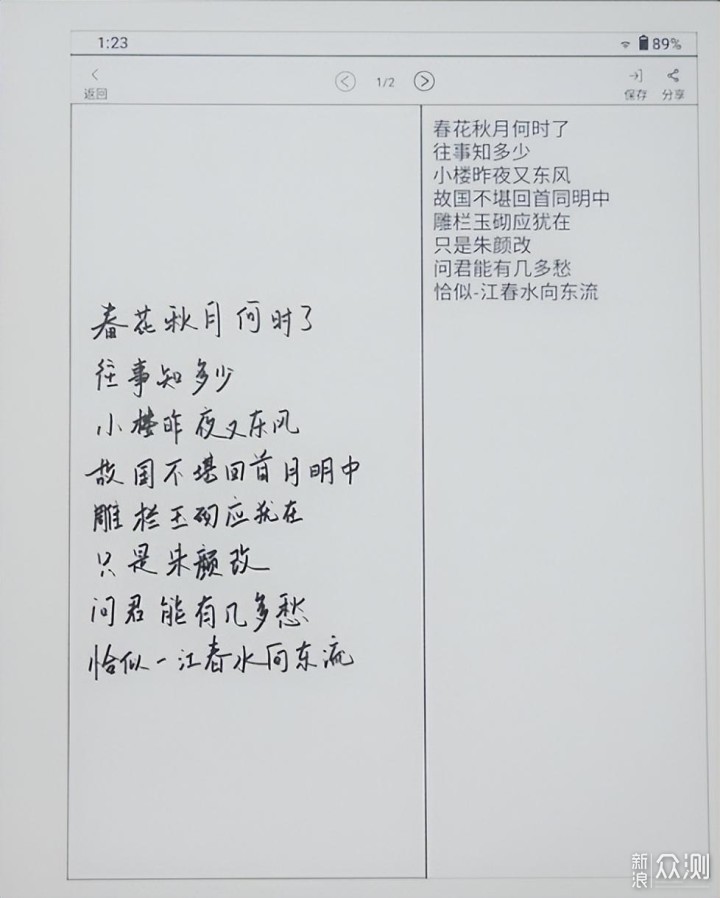 1:23
89%
返回
1/2
保存
分享
春花秋月何时了
往事知多少
小楼昨夜又东风
故国不堪回首月明中
雕栏玉砌应犹在
只是朱颜改
问君能有几多愁
恰似一江春水向东流
春花秋月何时了
往事知多少
小楼昨夜又东风
故国不堪回首同明中
雕栏玉砌应犹在
只是朱颜改
问君能有几多愁
恰似-江春水向东流
新浪
众测